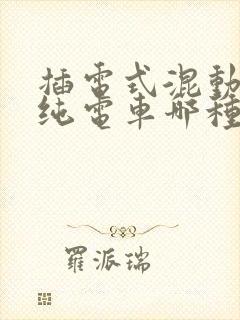 插電式混動
纯電車哪種
羅派瑞